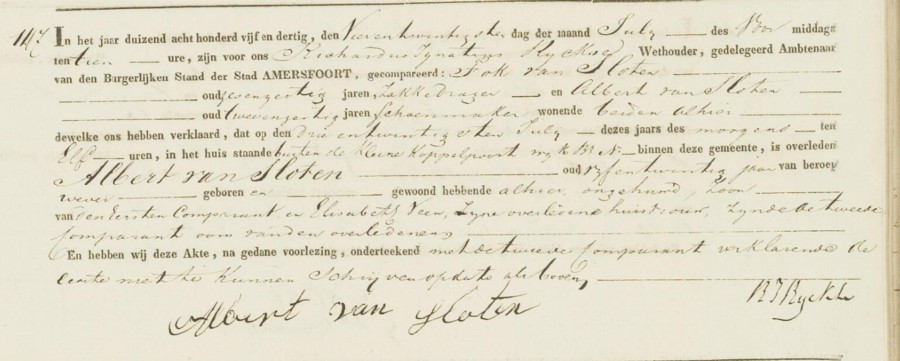 In het jaar duizend acht honderd vijf en dertig, den Vierentwintigsten dag der maand July des Voor middags
ten tien ure, zijn voor ons Richardus Ignatius Wethouder, gedelegeerd Ambtenaar
van den Burgerlijken Stand der Stad AMERSFOORT, gecompareerd: Fok van Sloten
oud zevenzestig jaren, Zakkedrager en Albert van Sloten
oud jaren, Schoenmaker wonende beiden alhier
dewelke ons hebben verklaard, dat op den Drie entwintigsten July dezes jaars des morgens ten
Elf uren, in het huis staande buyten de Kleine Koppelpoort wyk binnen deze gemeente, is overleden
Albert van Sloten oud vyfentwintig jaar van beroep
wever geboren en gewoond hebbende alhier, ongehuwd, Zoon
van den Eersten Comparant en Elisabeth Veen, Zyne overledene huisvrouw, Zynde de tweede
Comparant oom van den overledenen
En hebben wij deze Akte, na gedane voorlezing, onderteekend met de tweede Comparant verklarende de
eerste niet te kunnen Schryven op date als boven,
Albert van Sloten